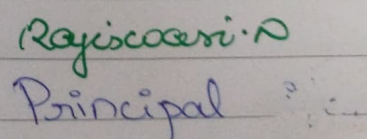 Rajiscoasi. N
Principal